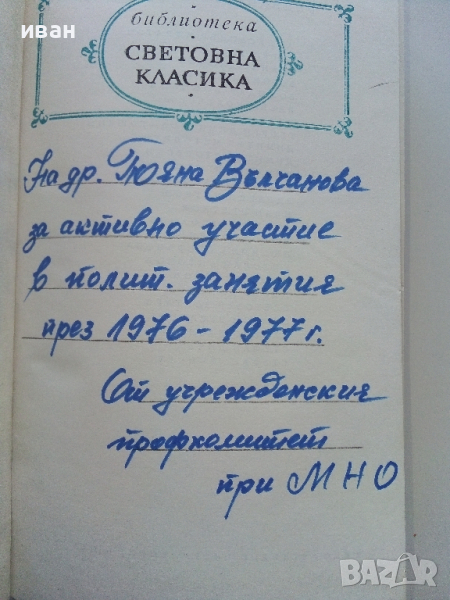 иван
библиотека
СВЕТОВНА
КЛАСИКА
На др. Вълчанова
за активно участие
в полит. занятия
през 1976 - 1977 г.
От учрежденския
профкомитет
при МНО
BAZAR